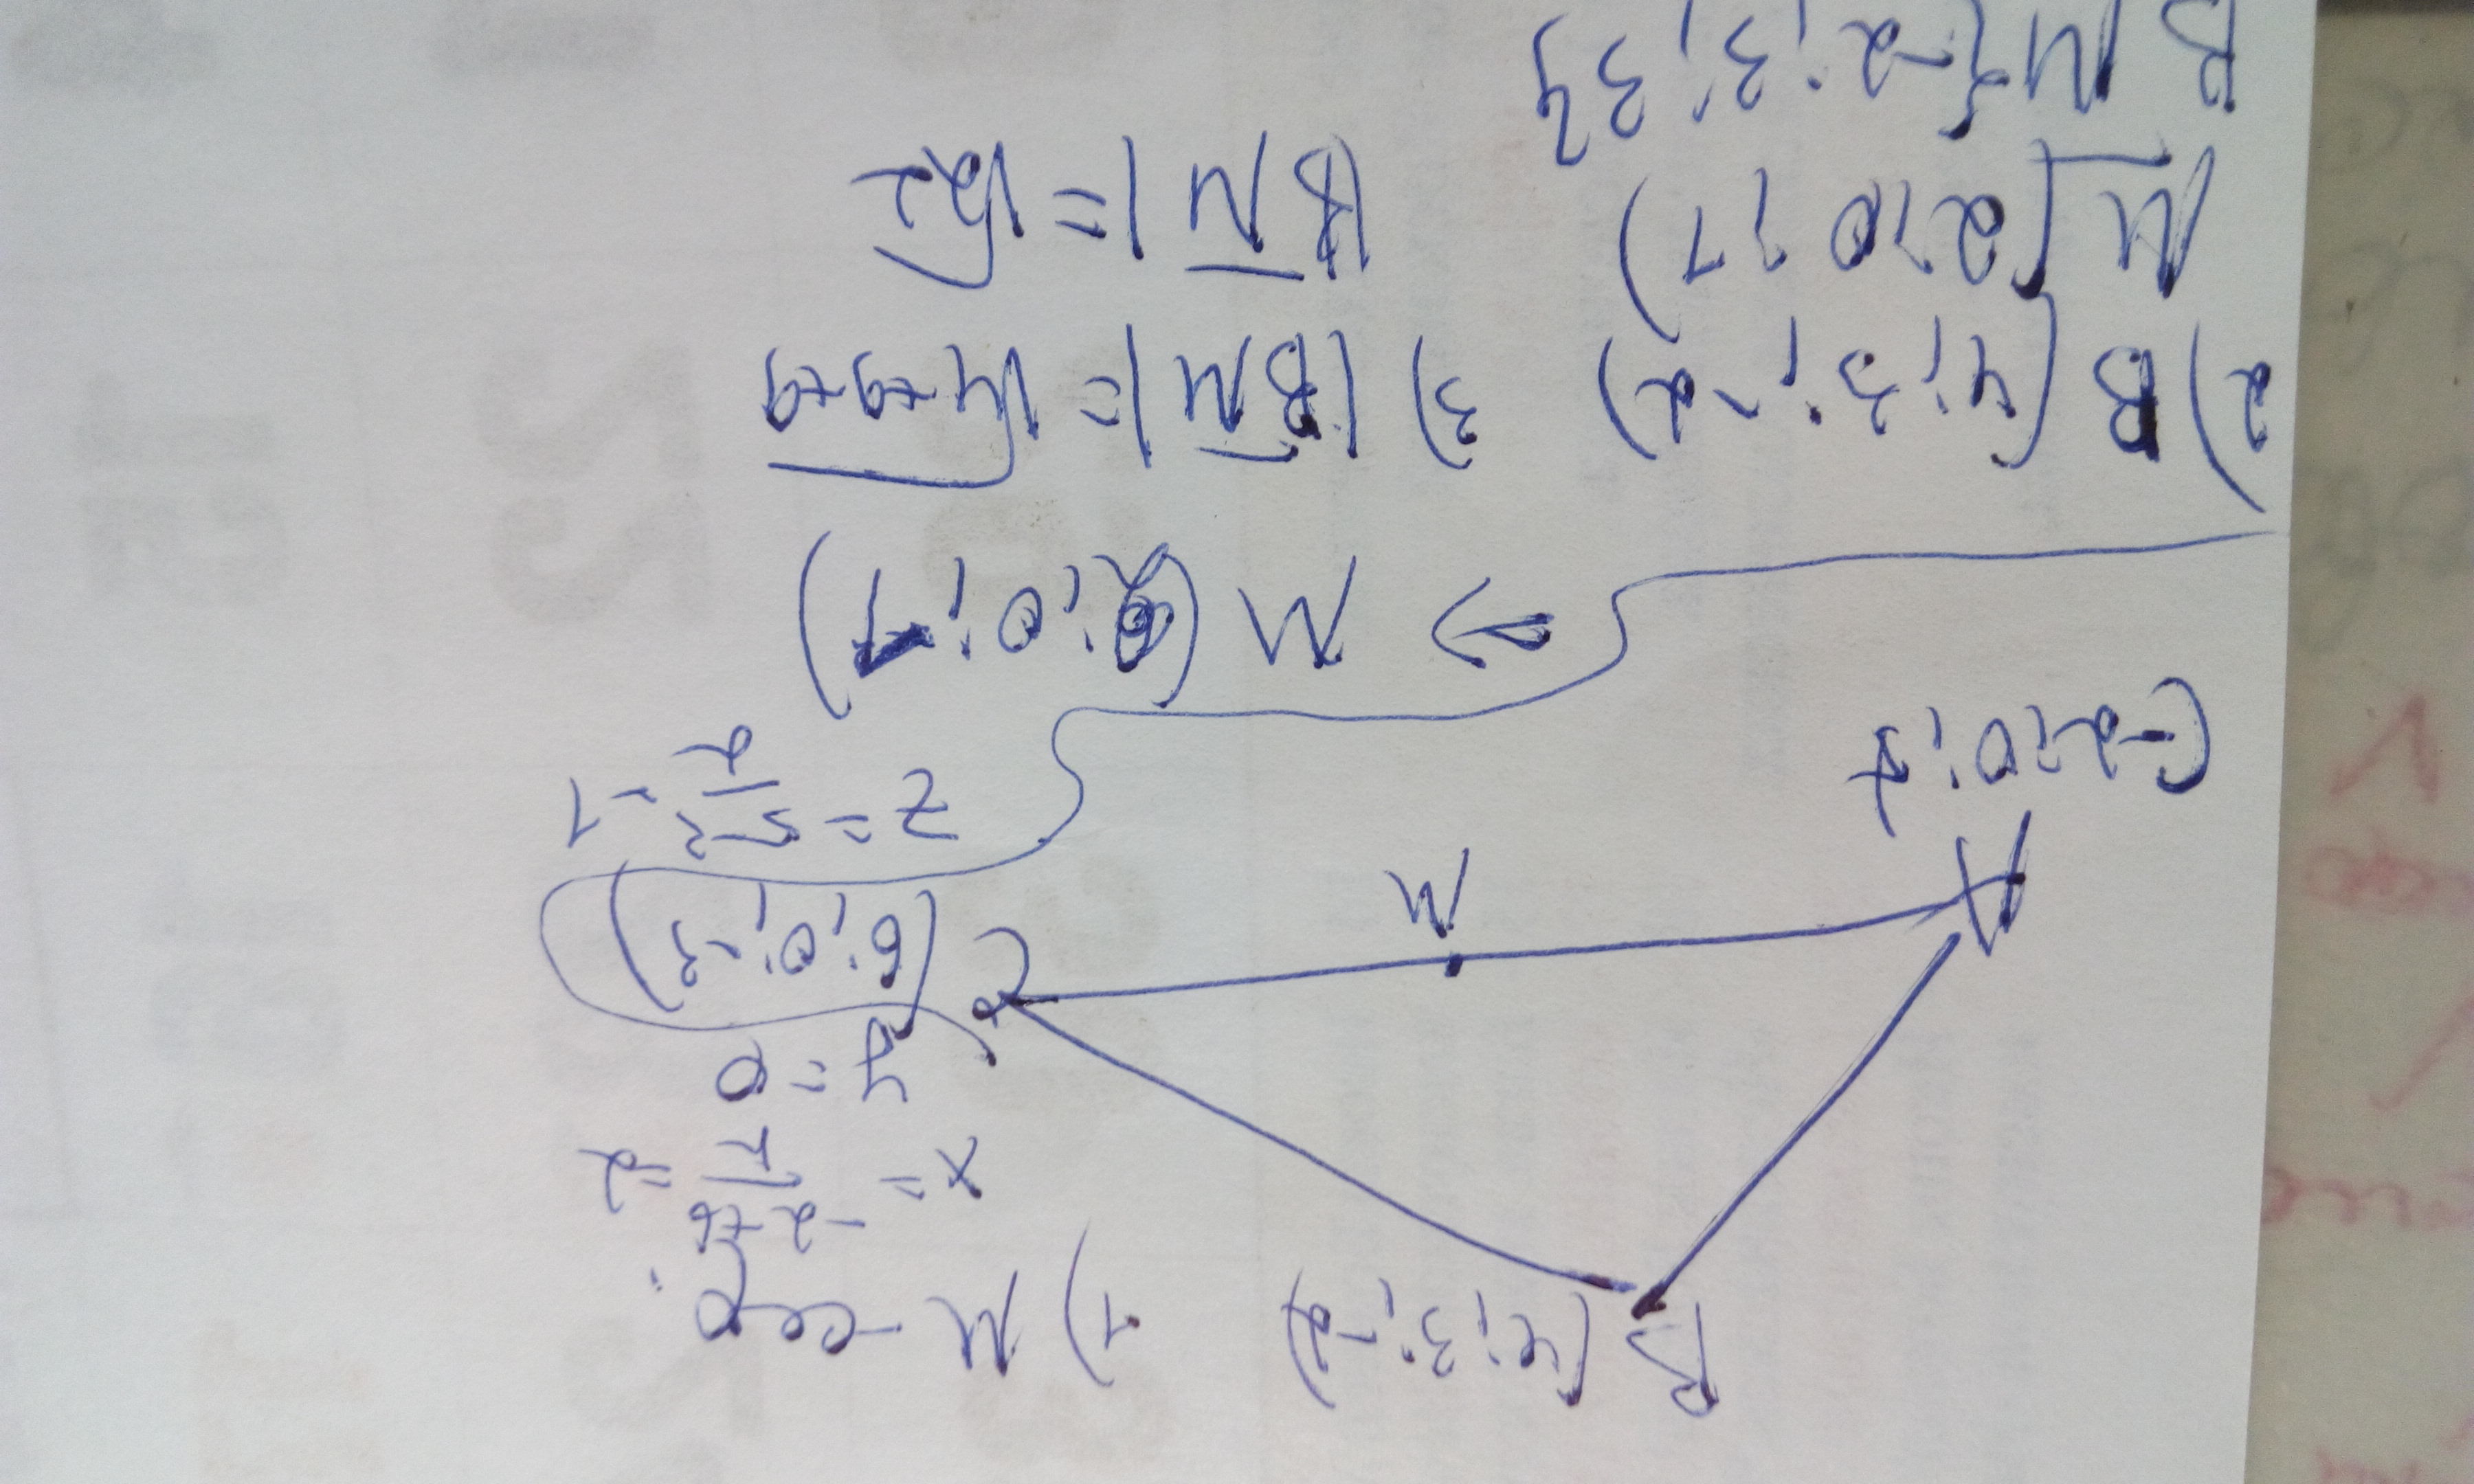 B (4;3;-2) 1) M - сер.
x = -2+6/2 = 2
y = 0
A M C (6;0;-3)
(-2;0;5)
z = 5-3/2 = 1
=> M (2;0;1)
2) B (4;3;-2) 3) |BM| = √4+9+9
M (2;0;1) |BM| = √22
BM {-2;3;3}